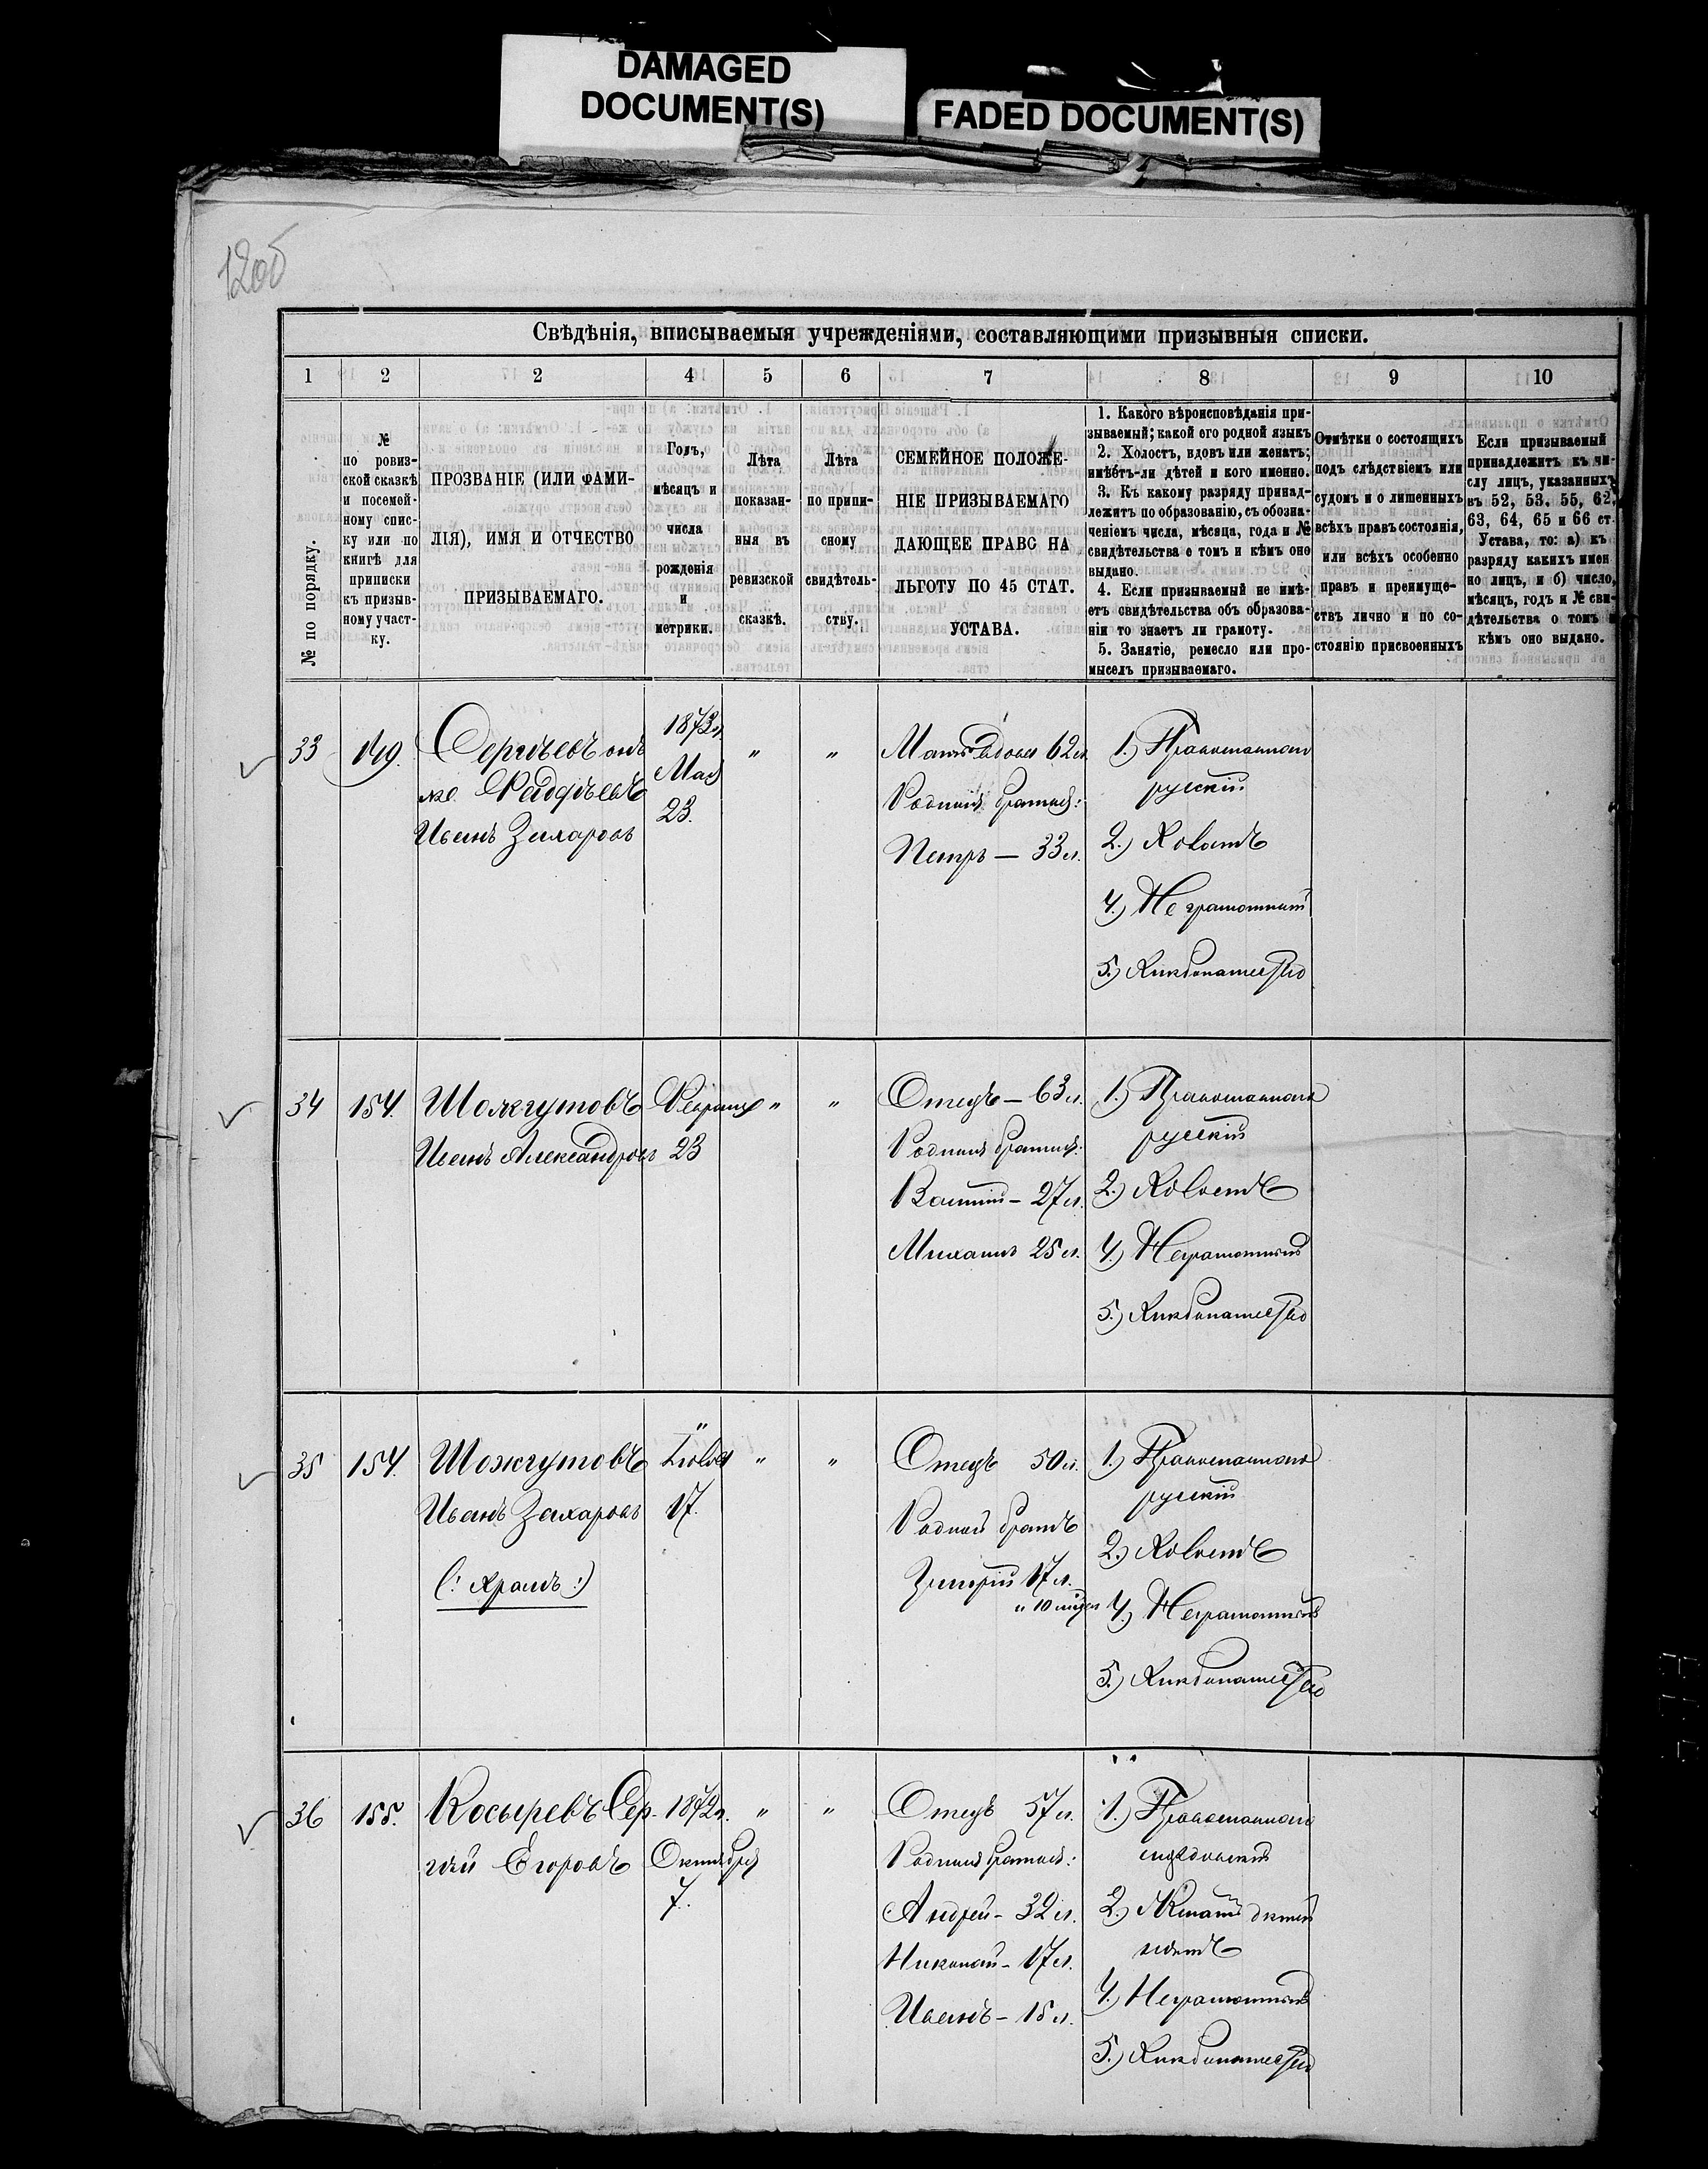 DAMAGED
DOCUMENT(S)
FADED DOCUMENT(S)
120об
Свѣдѣнія, вписываемыя учрежденіями, составляющими призывныя списки.
1 2 2 4 5 6 7 8 9 10
№ по порядку.
№
по ровиз-
ской сказкѣ
и посемей-
ному спис-
ку или по
книгѣ для
приписки
къ призыв-
ному участ-
ку.
ПРОЗВАНІЕ (ИЛИ ФАМИ-
ЛІЯ), ИМЯ И ОТЧЕСТВО
ПРИЗЫВАЕМАГО.
Годъ,
мѣсяцъ и
числа
рожденія
и
метрики.
Лѣта
показан-
ныя въ
ревизской
сказкѣ.
Лѣта
по припи-
сному
свидѣтель-
ству.
СЕМЕЙНОЕ ПОЛОЖЕ-
НІЕ ПРИЗЫВАЕМАГО
ДАЮЩЕЕ ПРАВО НА
ЛЬГОТУ ПО 45 СТАТ.
УСТАВА.
1. Какого вѣроисповѣданія при-
зываемый; какой его родной языкъ
2. Холостъ, вдовъ или женатъ;
имѣетъ-ли дѣтей и кого именно.
3. Къ какому разряду принад-
лежитъ по образованію, съ обозна-
ченіемъ числа, мѣсяца, года и №
свидѣтельства о томъ и кѣмъ оно
выдано.
4. Если призываемый не имѣ-
етъ свидѣтельства объ образова-
ніи то знаетъ ли грамоту.
5. Занятіе, ремесло или про-
мыселъ призываемаго.
Отмѣтки о состоящихъ
подъ слѣдствіемъ или
судомъ и о лишенныхъ
всѣхъ правъ состоянія,
или всѣхъ особенно
правъ и преимуще-
ствъ лично и по со-
стоянію присвоенныхъ
Если призываемый
принадлежитъ къ чи-
слу лицъ, указанныхъ
въ 52, 53, 55, 62,
63, 64, 65 и 66 ст.
Устава, то: а) къ
разряду какихъ имен
но лицъ, и б) число,
мѣсяцъ, годъ и № сви-
дѣтельства о томъ и
кѣмъ оно выдано.
33
149.
Сергѣевъ онъ
же Фаддѣевъ
Иванъ Захаровъ
1873г.
Мая
23.
"
"
Мать вдова 62л.
Родной братъ:
Петръ — 33л.
1.) Православнаго
русскій
2.) Холостъ
4.) Неграмотный
5.) Хлѣбопашество
34
154.
Шожгутовъ
Иванъ Александровъ
Февраля
23
"
"
Отецъ — 63л.
Родныя братья:
Василій — 27л.
Михаилъ 25л.
1.) Православнаго
русскій
2.) Холостъ
4.) Неграмотный
5.) Хлѣбопашество
35
154.
Шожгутовъ
Иванъ Захаровъ
(: хромъ :)
"
Іюля
17.
"
"
Отецъ 50л.
Родной братъ
Григорій 17л.
" 10 мѣся
1.) Православнаго
русскій
2.) Холостъ
4.) Неграмотный
5.) Хлѣбопашество
36
155.
Косыревъ Сер-
гѣй Егоровъ
1872г.
Октября
7.
"
"
Отецъ 57л.
Родныя братья:
Андрей — 32л.
Николай — 17л.
Иванъ — 15л.
1.) Православнаго
2.) Женатъ дѣтей
нѣтъ
4.) Неграмотный
5.) Хлѣбопашество